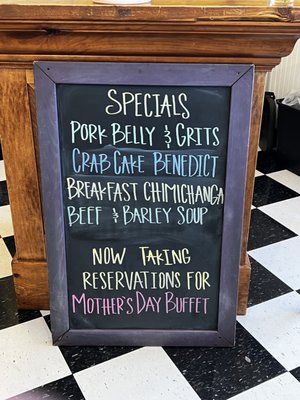 SPECIALS
PORK BELLY & GRITS
CRAB CAKE BENEDICT
BREAKFAST CHIMICHANGA
BEEF & BARLEY SOUP
NOW TAKING
RESERVATIONS FOR
MOTHER'S DAY BUFFET